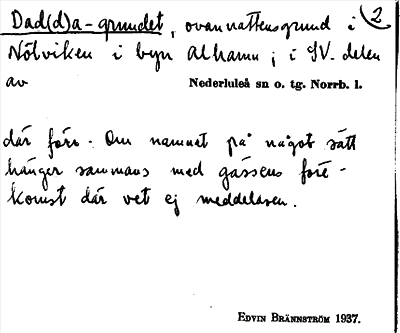 Dad(d)a-grundet, ovanvattensgrund i (2
Nötviken i byn Alhamn; i SV. delen
av Nederluleå sn o. tg. Norrb. l.
där förr. Om namnet på något sätt
hänger sammans med gässens före-
komst där vet ej meddelaren.
EDVIN BRÄNNSTRÖM 1937.